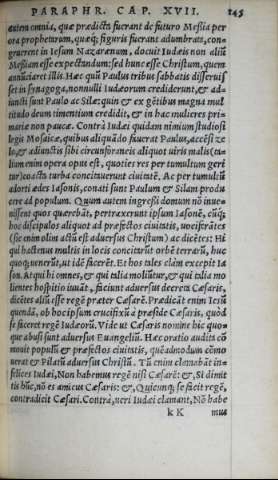 PARAPHR. CAP. XVII. 145
autem omnia, quæ prædicta fuerant de futuro Messia per
ora prophetarum, quæq; figuris fuerant adumbrata, con=
gruerent in Iesum Nazarenum, docuit Iudæis non aliũ
Messiam esse expectandum: sed hunc esse Christum, quem
annũciaret illis. Hæc quũ Paulus tribus sabbatis disseruis
set in synagoga, nonnulli Iudæorum crediderunt, & ad=
iuncti sunt Paulo ac Silæ: quin & ex gẽtibus magna mul
titudo deum timentium credidit, & in hac mulieres pri=
mariæ non paucæ. Contrà Iudæi quidam nimium studiosi
legis Mosaicæ, quibus aliquãdo fauerat Paulus, accersi ze
lo, & adiunctis sibi circunforaneis aliquot uiris malis (ta=
lium enim opera opus est, quoties res per tumultum geri
tur) coacta turba concitauerunt ciuitatẽ. Ac per tumultũ
adorti ædes Iasonis, conati sunt Paulum & Silam produ
cere ad populum. Quum autem ingressi domum nõ inue=
nissent quos quærebãt, pertraxerunt ipsum Iasonẽ, cũq;
hoc discipulos aliquot ad præfectos ciuitatis, uociferãtes
(sic enim olim actũ est aduersus Christum) ac dicẽtes: Hi
qui hactenus multis in locis concitarũt orbẽ terrarũ, huc
quoq; uenerũt, ut idẽ facerẽt. Et hos tales clàm excepit Ia
son. Atqui hi omnes, & qui talia moliũtur, & qui talia mo
lientes hospitio iuuãt, faciunt aduersus decreta Cæsaris,
dicẽtes aliũ esse regẽ præter Cæsarẽ. Prædicãt enim Iesũ
quendã, ob hoc ipsum crucifixũ à præside Cæsaris, quòd
se faceret regẽ Iudæorũ. Vide ut Cæsaris nomine hic quo=
que abusi sunt aduersus Euangeliũ. Hæc oratio audita cõ
mouit populũ & præfectos ciuitatis, quẽadmodum cõmo
uerat & Pilatũ aduersus Christũ. Tũ enim clamabãt in=
felices Iudæi, Non habemus regẽ nisi Cæsarẽ: &, Si dimit
tis hũc, nõ es amicus Cæsaris: &, Quicunq; se facit regẽ,
contradicit Cæsari. Contrà, ueri Iudæi clamant, Nõ habe
k K mus